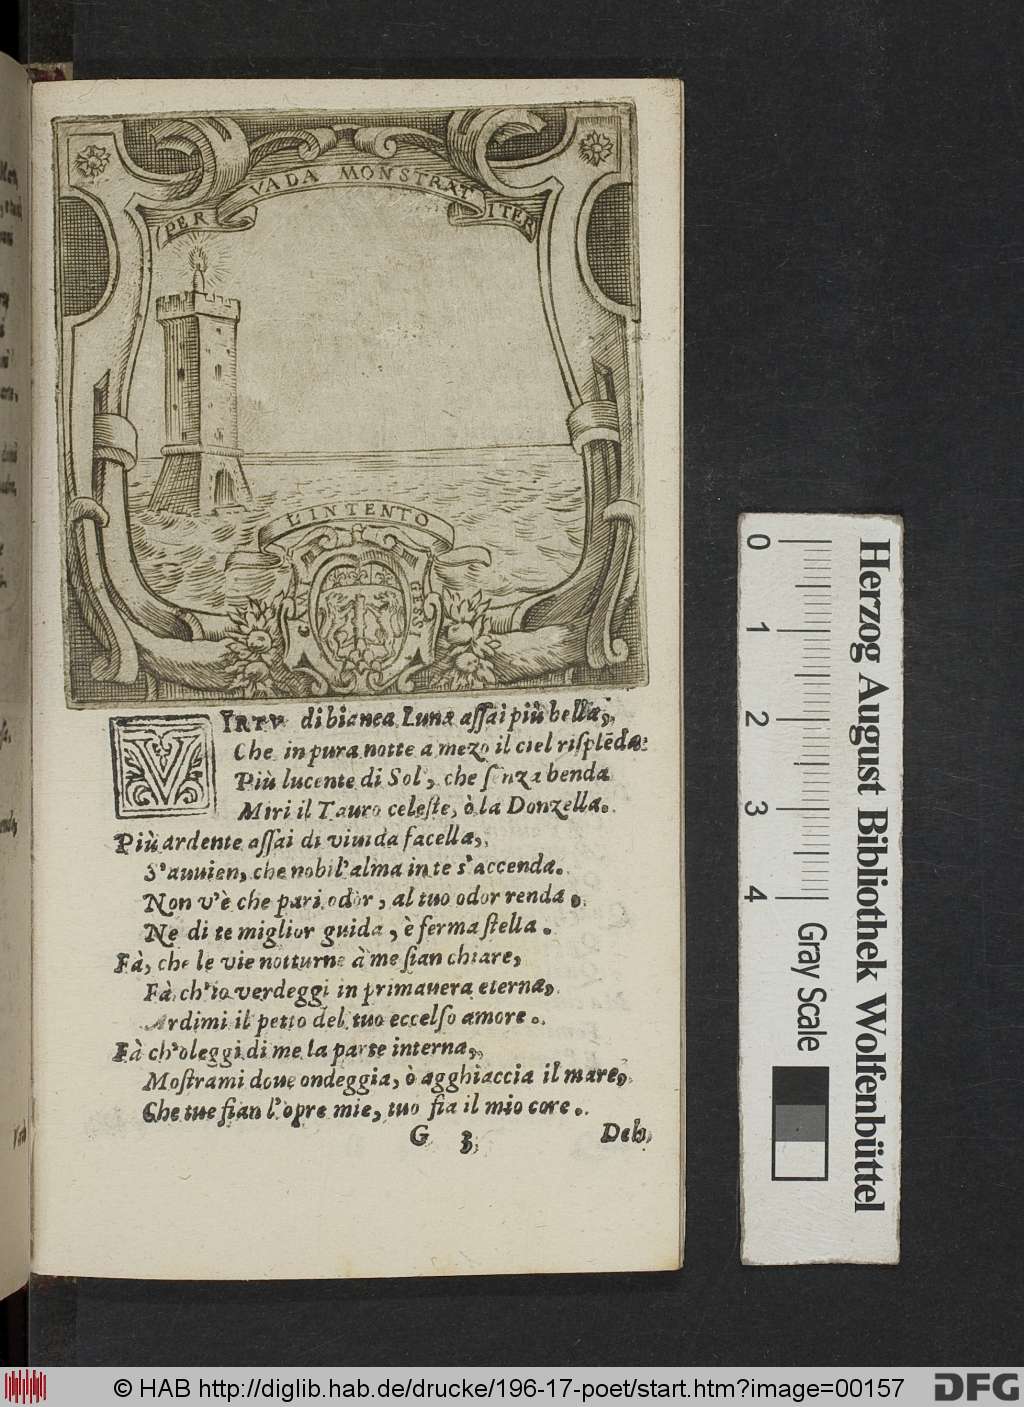 PER VADA MONSTRAT ITER
L'INTENTO
VIRTV di bianca Luna assai più bella,
Che in pura notte a mezo il ciel risplẽda:
Più lucente di Sol, che senza benda
Miri il Tauro celeste, ò la Donzella.
Più ardente assai di viuida facella,
S'auuien, che nobil'alma in te s'accenda.
Non v'è che pari odor, al tuo odor renda,
Ne di te miglior guida, è ferma stella.
Fà, che le vie notturne à me sian chiare,
Fà ch'io verdeggi in primauera eterna,
Ardimi il petto del tuo eccelso amore.
Fà ch'oleggi di me la parte interna,
Mostrami doue ondeggia, ò agghiaccia il mare,
Che tue sian l'opre mie, tuo sia il mio core.
G 3
Deh,
0 1 2 3 4
Gray Scale
Herzog August Bibliothek Wolfenbüttel
© HAB http://diglib.hab.de/drucke/196-17-poet/start.htm?image=00157
DFG